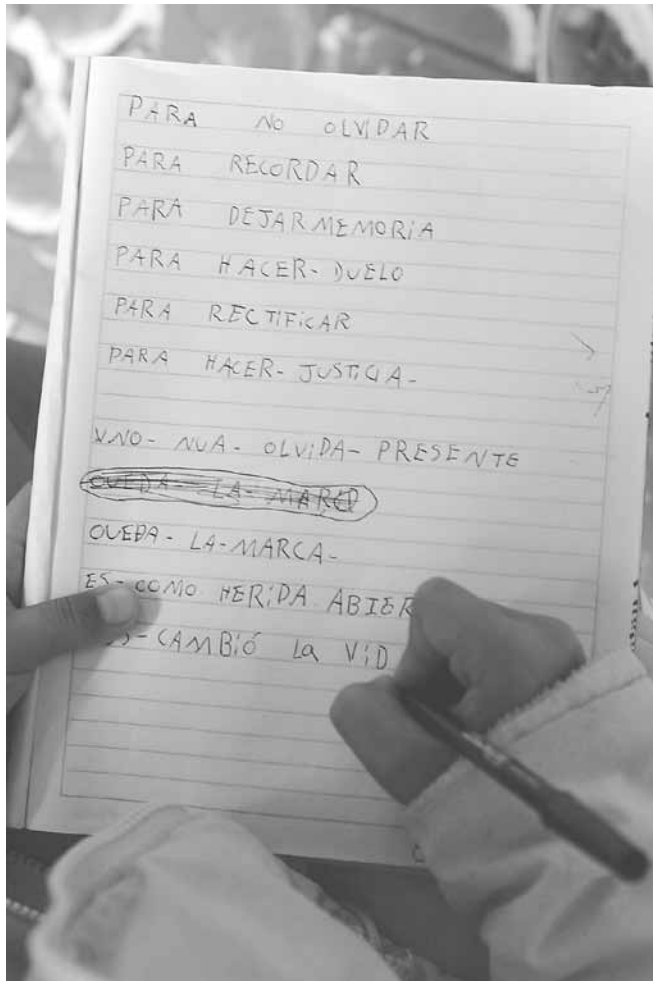 PARA NO OLVIDAR
PARA RECORDAR
PARA DEJAR MEMORIA
PARA HACER- DUELO
PARA RECTiFiCAR
PARA HACER- JUSTiCiA-
UNO- NUA- OLViDA- PRESENTE
QUEDA- LA- MARCO
QUEDA- LA-MARCA-
ES- COMO HERiDA ABIER
CAMBiÓ La ViD